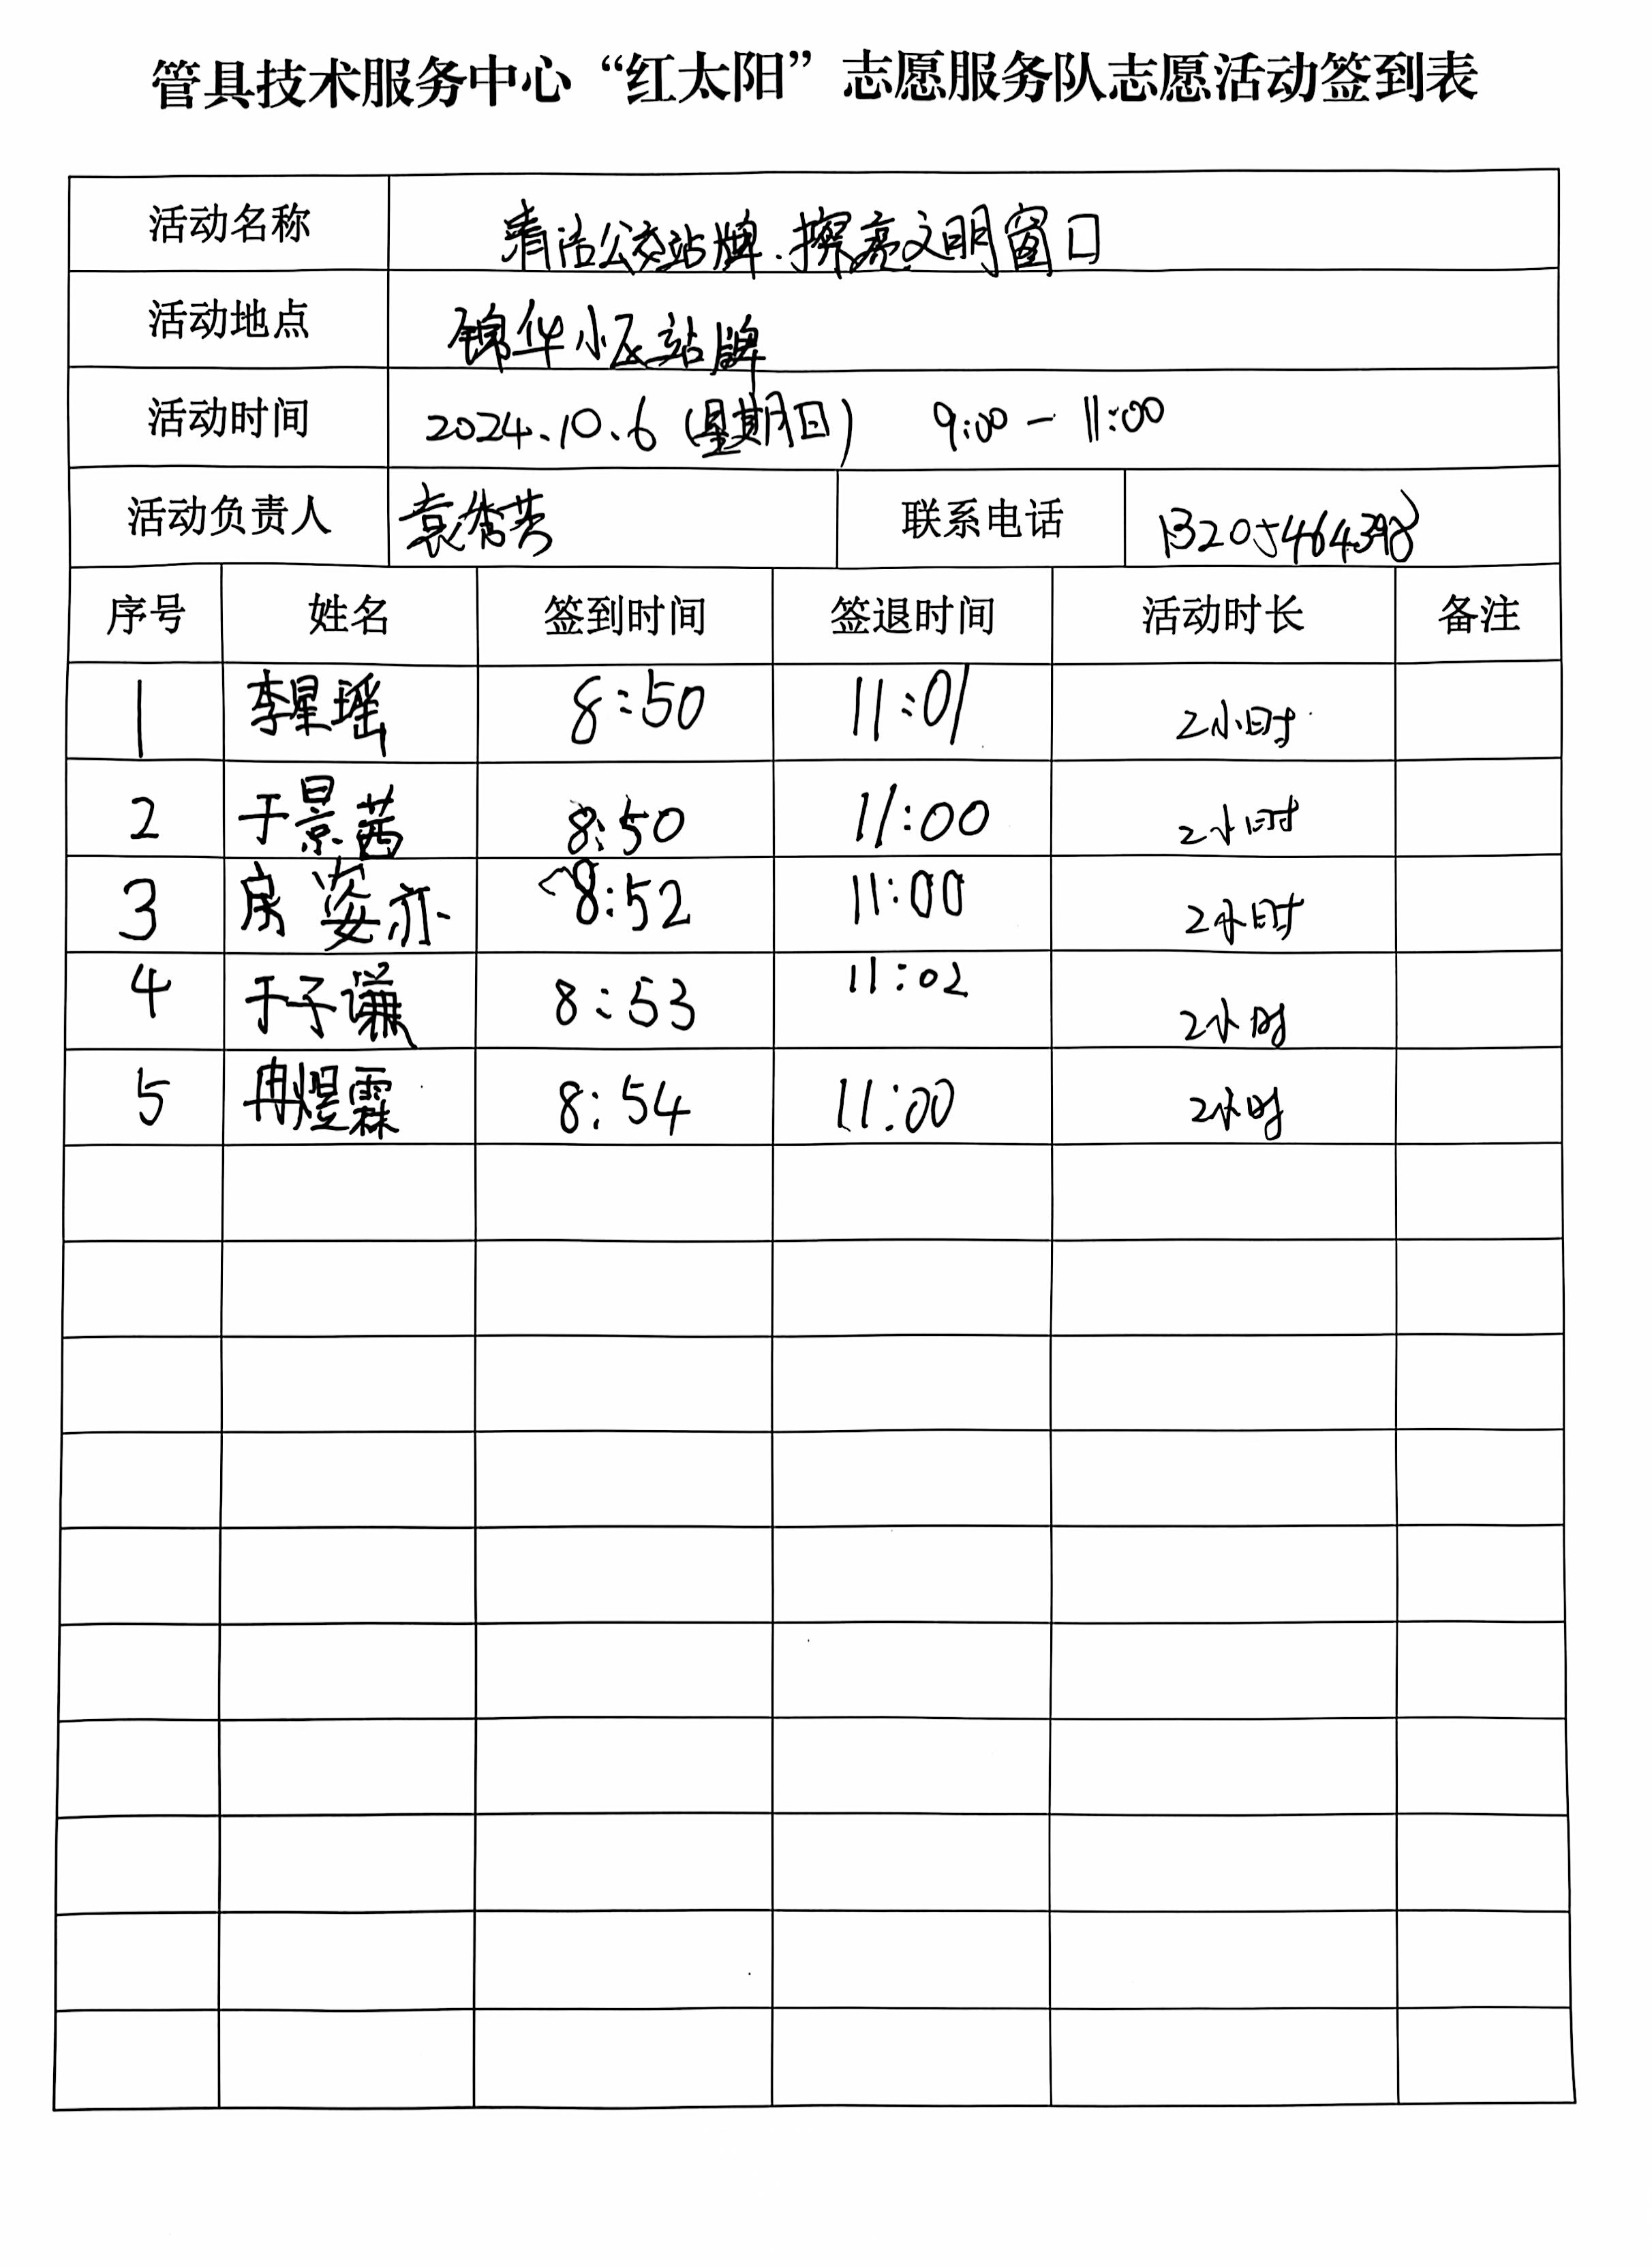 管具技术服务中心“红太阳”志愿服务队志愿活动签到表
活动名称 清洁公交站牌.擦亮文明窗口
活动地点 锦华小区站牌
活动时间 2024.10.6 (星期日) 9:00-11:00
活动负责人 袁秀芳 联系电话 13205464398
序号 姓名 签到时间 签退时间 活动时长 备注
1 李星瑶 8:50 11:01 2小时
2 于景茜 8:50 11:00 2小时
3 房姿亦 8:52 11:00 2小时
4 于子谦 8:53 11:02 2小时
5 冉煜霖 8:54 11:00 2小时